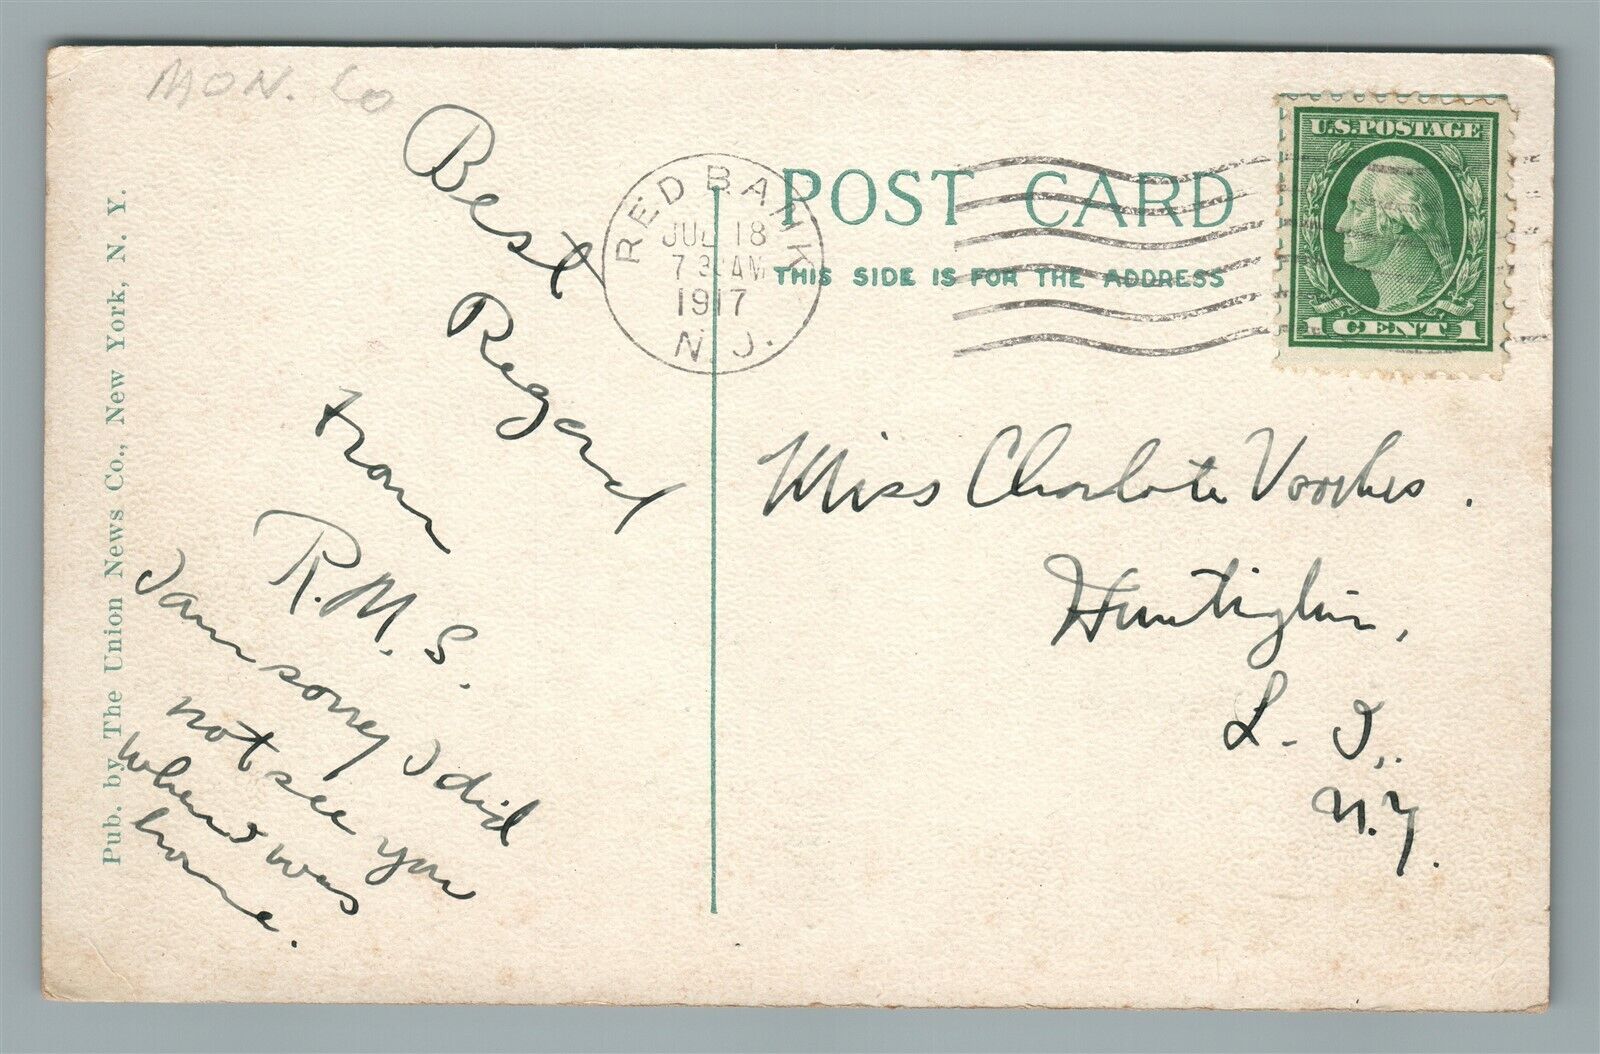 MON. CO
Best
Regard
from
R. M. S.
I am sorrey I did
not see you
when I was
home.
Pub. by The Union News Co., New York, N. Y.
RED BANK
JUL 18
7 30 AM
1917
N. J.
POST CARD
THIS SIDE IS FOR THE ADDRESS
U.S. POSTAGE
1 CENT 1
Miss Charlote Voorhes.
Huntington,
L. I.,
N.Y.